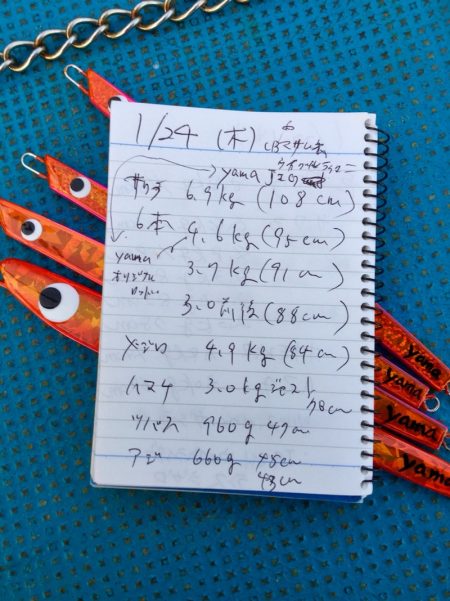 1/24 (木)
yama
サワラ 6.9kg (108cm)
6本 4.6kg (95cm)
yama
オリジナル
3.7kg (91cm)
3.0前後 (88cm)
メジロ 4.9kg (84cm)
ハマチ 3.0kgジャスト
78cm
ツバス 960g 47cm
アジ 660g 45cm
43cm
yama
yama
yama
yama